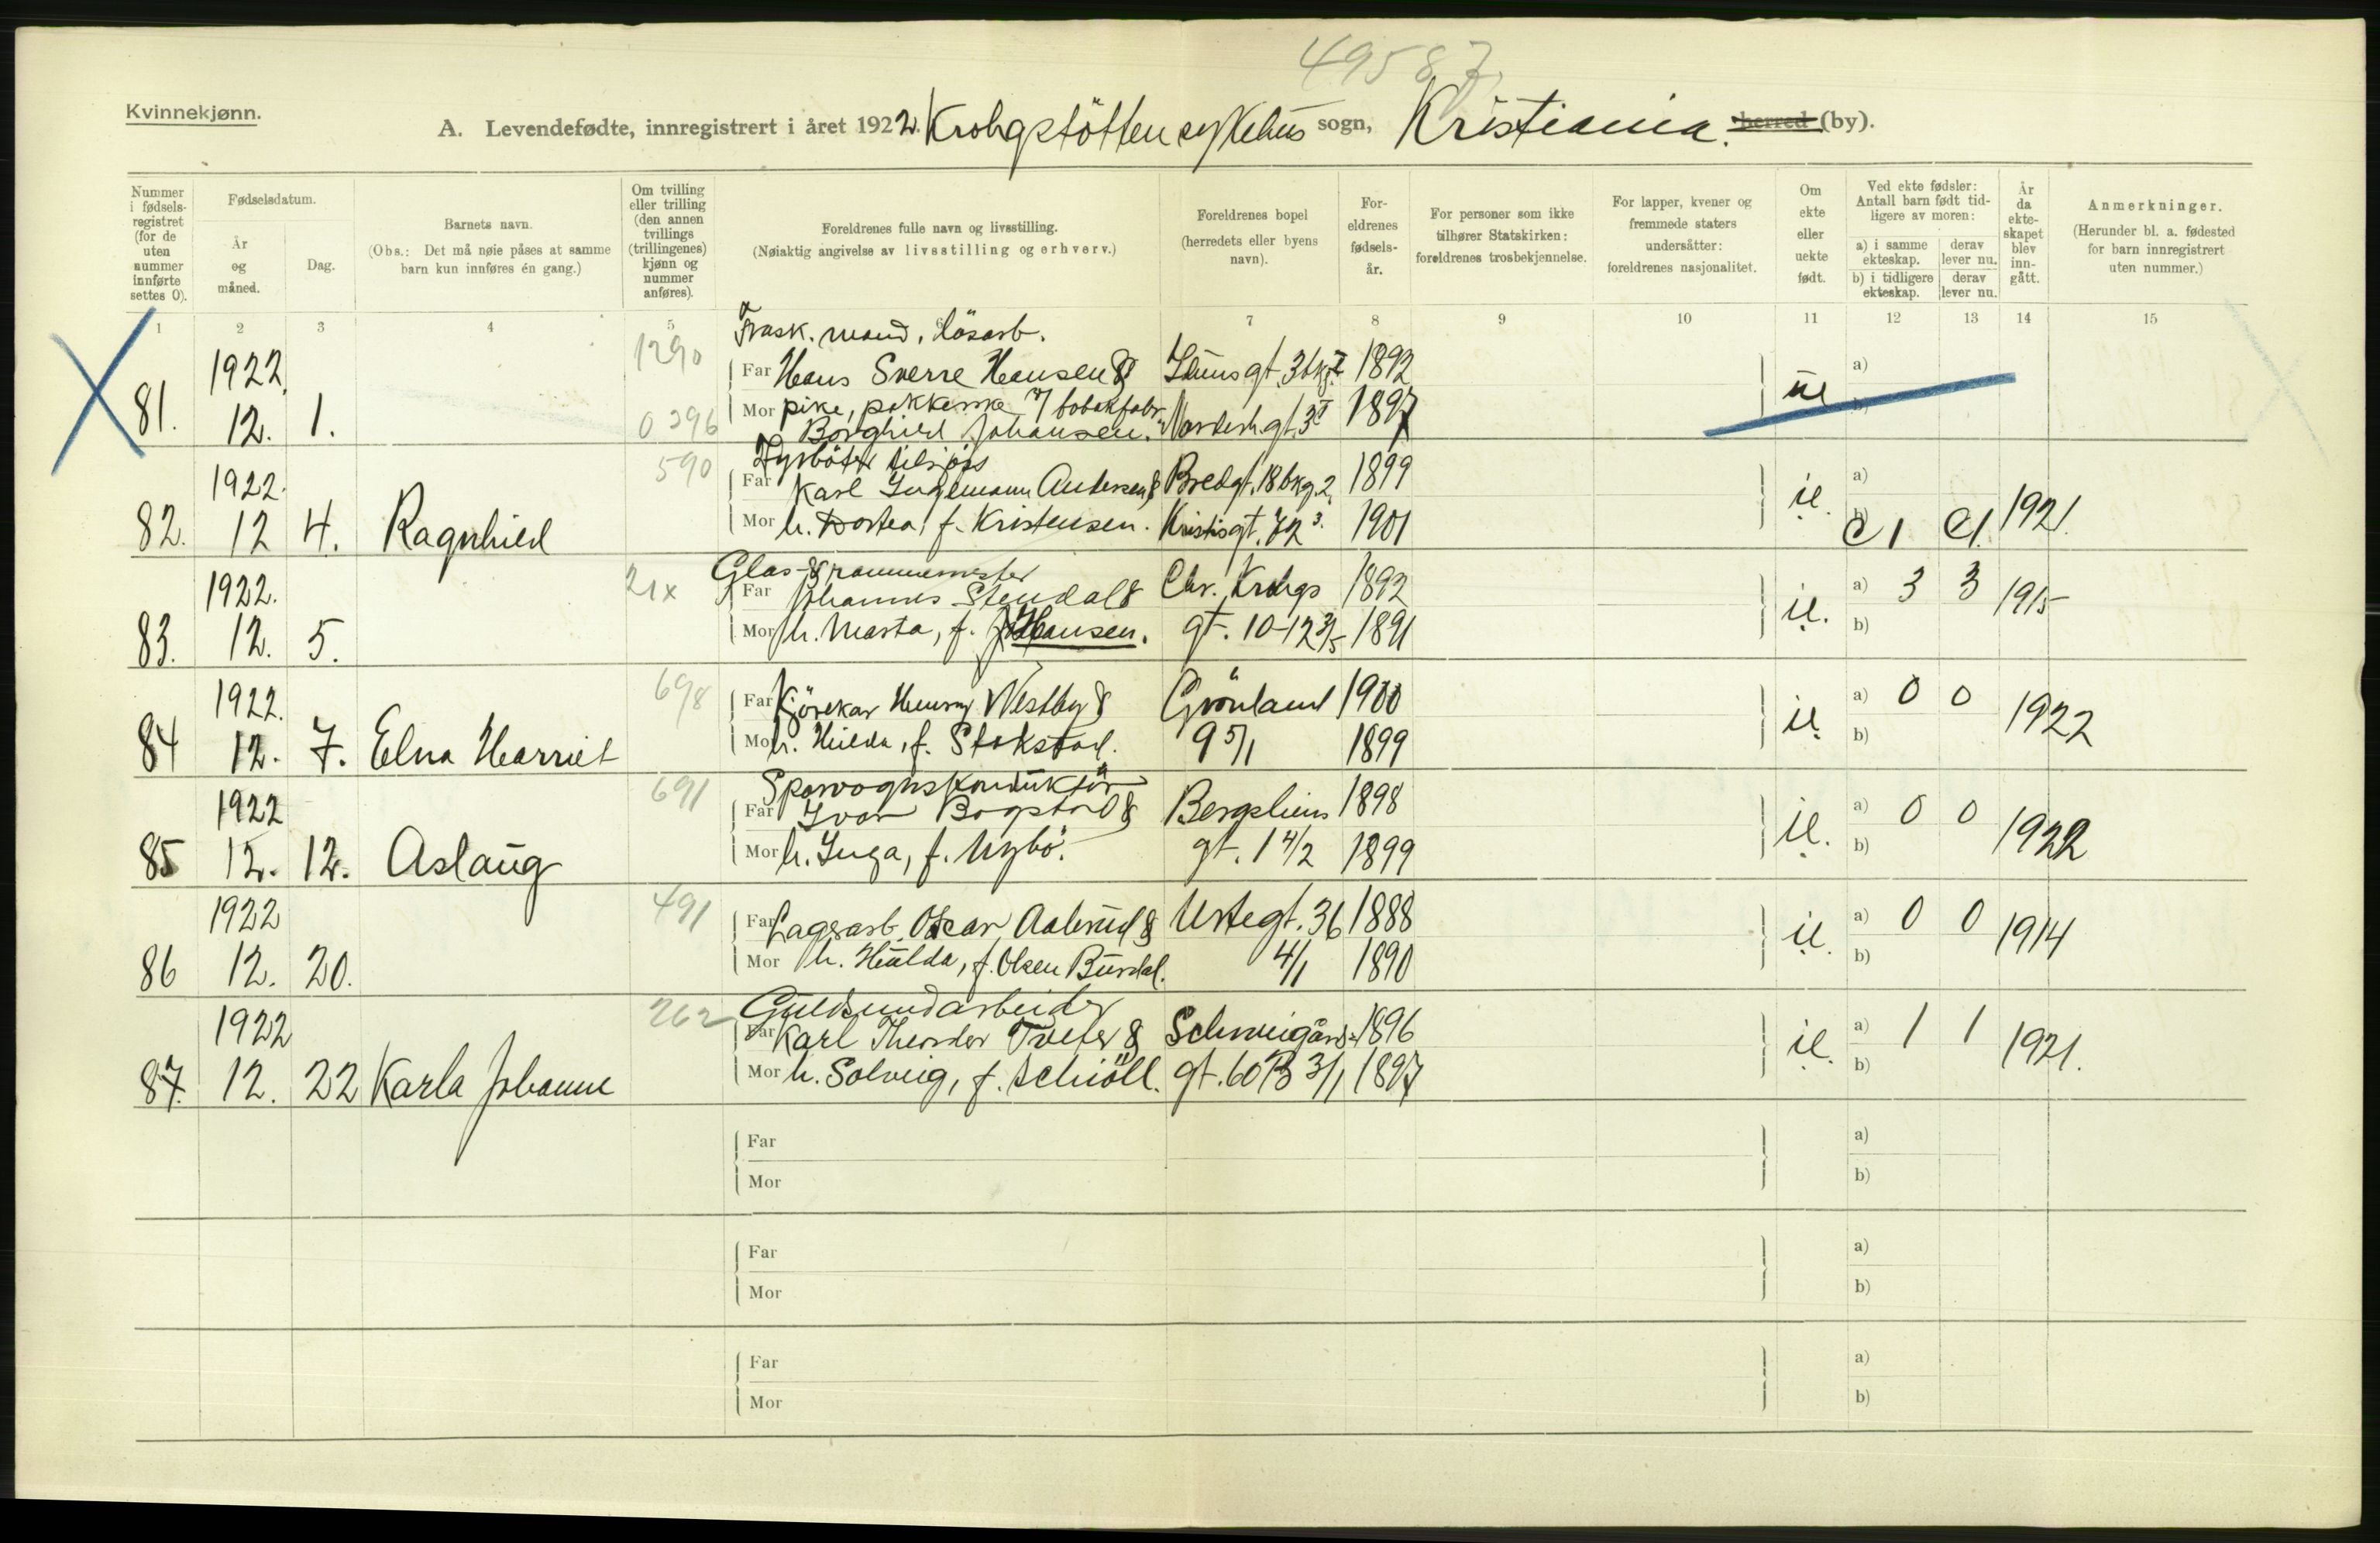 49587
Kvinnekjønn.
A. Levendefødte, innregistrert i året 1922. Krohgstötten sykehus sogn, Kristiania. herred (by).
Nummer i fødsels-registret (for de uten nummer innførte settes 0).
Fødselsdatum.
År og måned.
Dag.
Barnets navn.
(Obs.: Det må nøie påses at samme barn kun innføres én gang.)
Om tvilling eller trilling (den annen tvillings (trillingenes) kjønn og nummer anføres).
Foreldrenes fulle navn og livsstilling.
(Nøiaktig angivelse av livsstilling og erhverv.)
Foreldrenes bopel (herredets eller byens navn).
For-eldrenes fødsels-år.
For personer som ikke tilhører Statskirken: foreldrenes trosbekjennelse.
For lapper, kvener og fremmede staters undersåtter: foreldrenes nasjonalitet.
Om ekte eller uekte født.
Ved ekte fødsler: Antall barn født tid-ligere av moren:
a) i samme ekteskap. derav lever nu.
b) i tidligere ekteskap. derav lever nu.
År da ekte-skapet blev inn-gått.
Anmerkninger.
(Herunder bl. a. fødested for barn innregistrert uten nummer.)
1 2 3 4 5 6 7 8 9 10 11 12 13 14 15
Frask. mand, Lösarb.
1922. 1290 Far Hans Sverre Hansen & gt. 36 1892 a)
81. 12. 1. 0396 Mor pike, pakkerske 1897 ue b)
Borghild Johansen.
1922. 590 Far Karl Andersen & Bredgt. 18 bkg. 2 1899 a)
82. 12 4. Ragnhild Mor h. Dortea, f. Kristensen. 1901 e. b) 1 1 1921.
Glas & rammemester
1922. 21x Far Johannes Stendal & Chr. Krohgs 1892 e. a) 3 3 1915
83. 12. 5. Mor h. Marta, f. Hansen. gt. 10-12 3/5 1891 b)
1922. 698 Far Kjörekar Henry Westby & Grönland 1900 e. a) 0 0 1922
84 12. 7. Elna Harriet Mor h. Hilda, f. Stokstad. 9 5/1 1899 b)
Sporvognskonduktör
1922 691 Far Ivar Bogstad & Bergsliens 1898 e. a) 0 0 1922
85 12. 12. Aslaug Mor h. Inga, f. Nybö. gt. 1 4/2 1899 b)
1922 491 Far Lagerarb. Oscar Aabrud & Urtegt. 36 1888 e. a) 0 0 1914
86 12. 20. Mor h. Hulda, f. Olsen Burdal. 4/1 1890 b)
Guldsmedarbeider
1922 262 Far Karl Theodor Tveter & Schweigårds 1896 e. a) 1 1 1921.
87. 12. 22 Karla Johanne Mor h. Solveig, f. Schiöll. gt. 60 B 3/1 1897 b)
Far a)
Mor b)
Far a)
Mor b)
Far a)
Mor b)